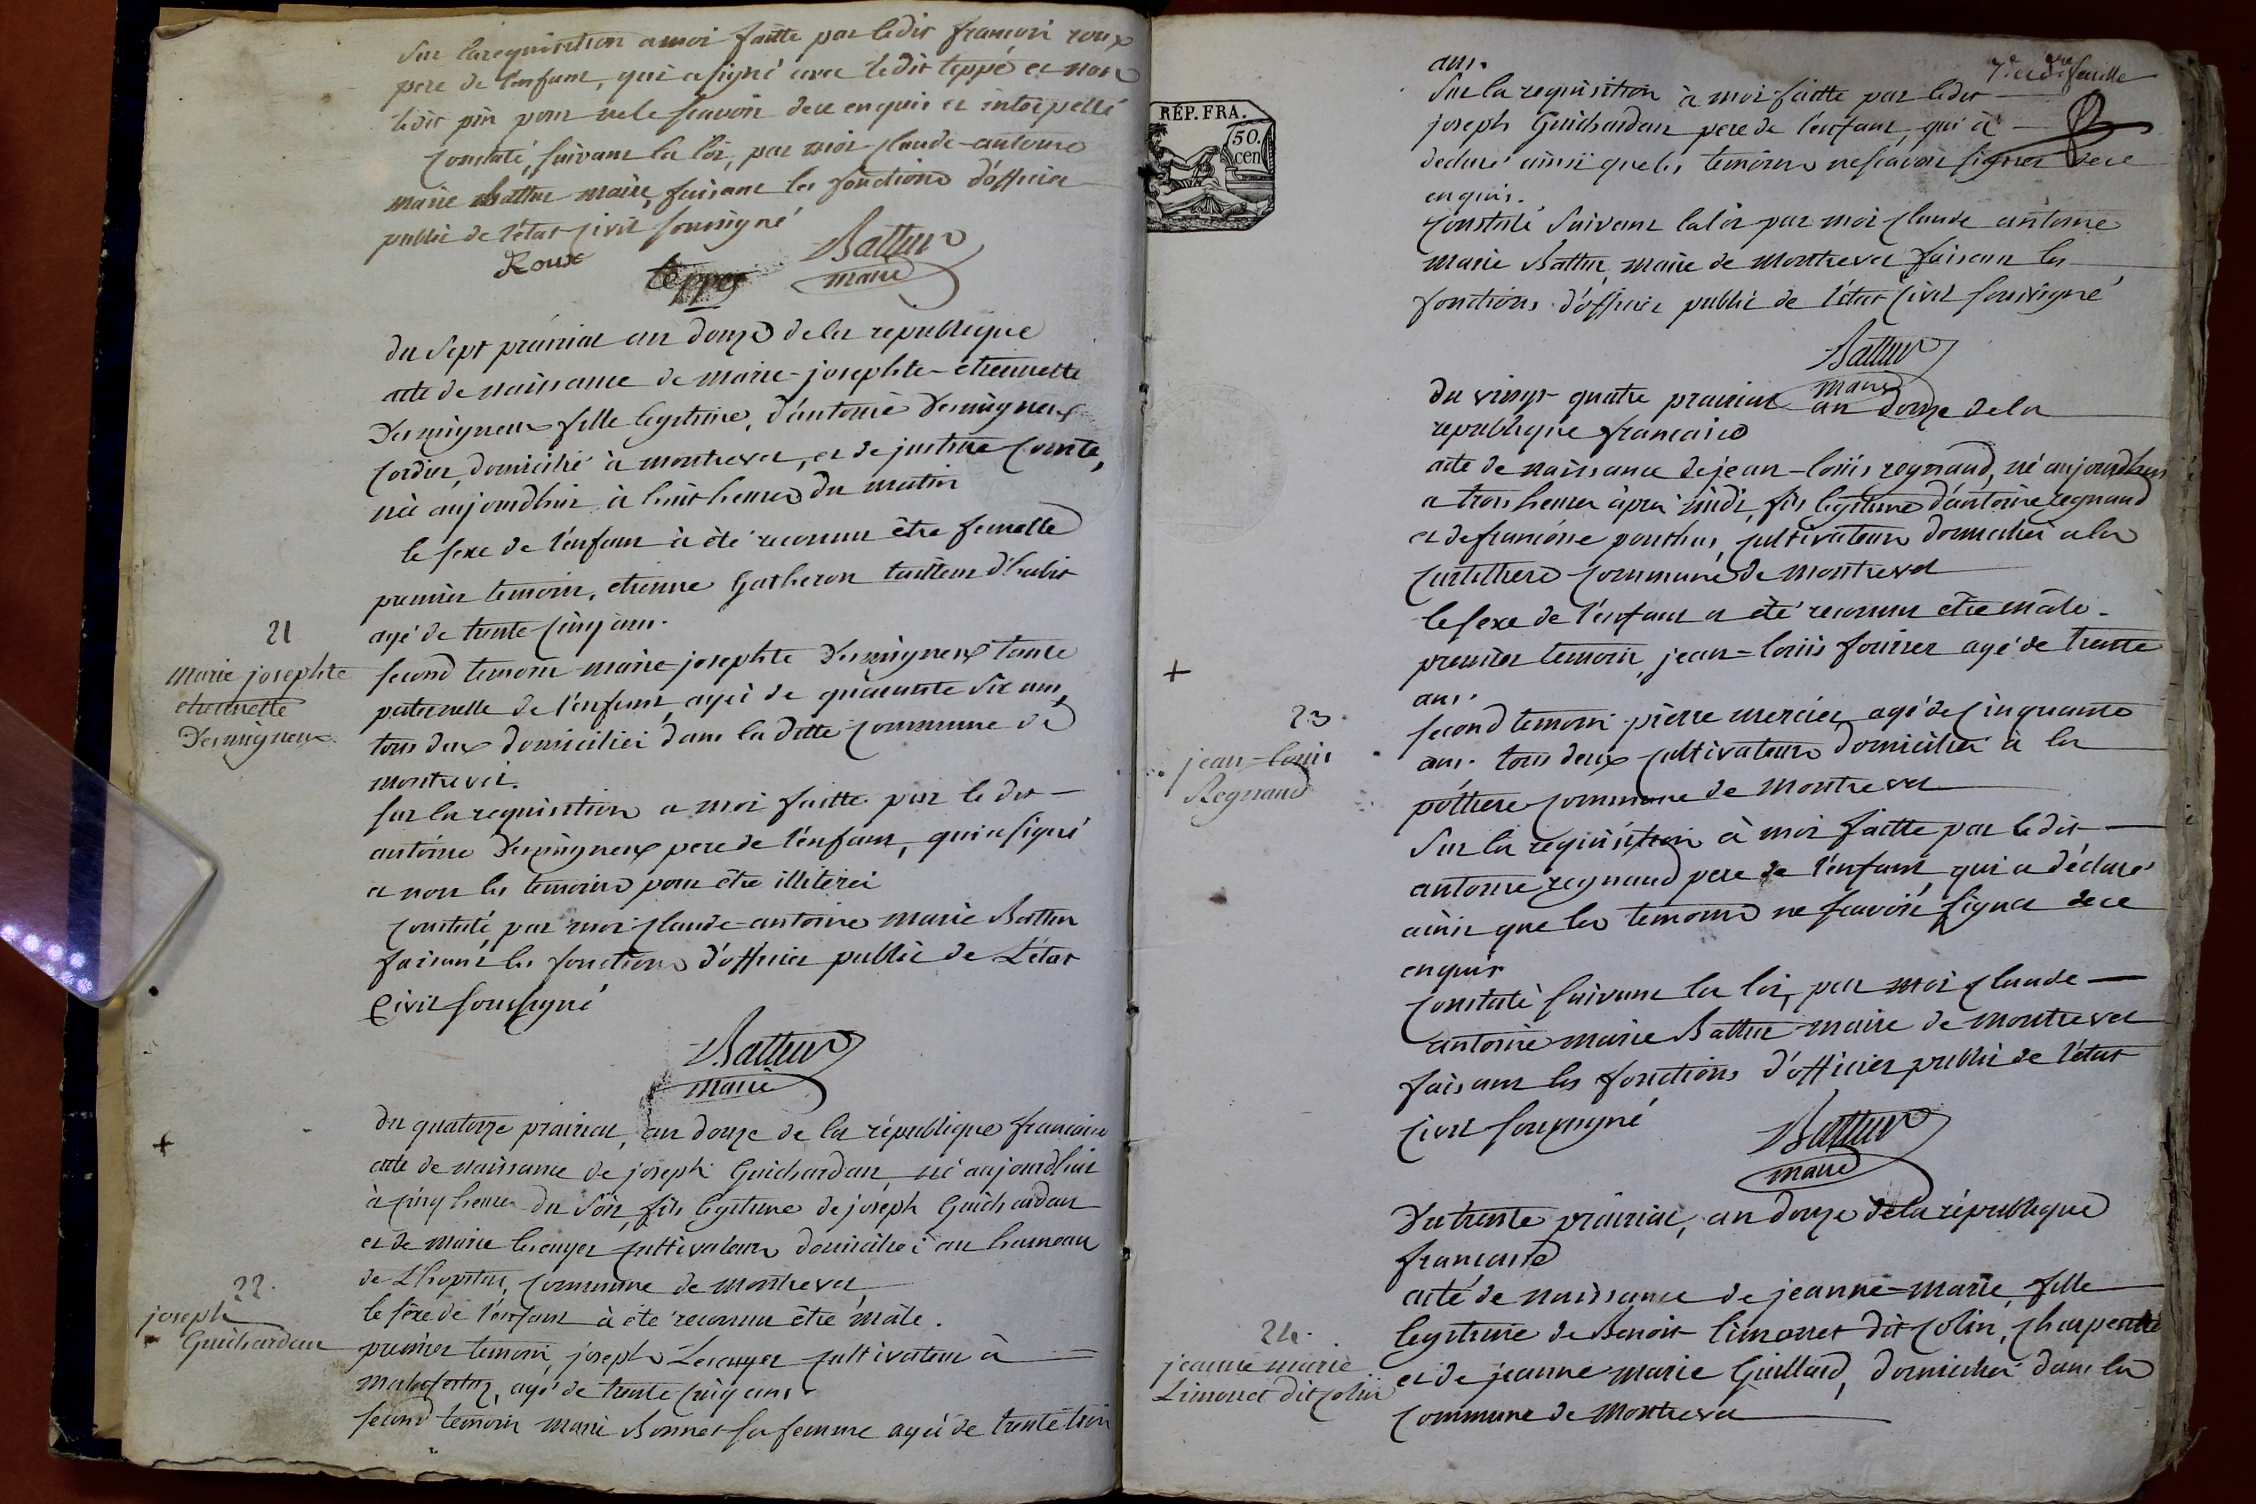 Sur la requisition a moi faitte par ledit francois roux
pere de l'enfant, qui a signé avec ledit teppe et non
ledit pin pour ne le scavoir de ce enquis et interpellé
Constaté, suivant la loi, par moi Claude-antoine
marie Battur maire, faisant les fonctions d'officier
public de l'état Civil soussigné
Roux teppe Battur
maire
du sept prairial an douze de la republique
acte de naissance de marie-josephte-etiennette
Desvigneux fille legitime, d'antoine Desvigneux
Cordier, domicilié à montrevel, et de justine Comte,
née aujourdhui à huit heures du matin
le sexe de l'enfant à été reconnu être femelle
premier temoin, etienne Gatheron tailleur d'habit
agé de trente Cinq ans.
21
marie josephte
etiennette
Desvigneux
second temoin marie-josephte Desvigneux tante
paternelle de l'enfant, agée de quarante six ans,
tous deux domiciliés dans la ditte Commune de
montrevel.
sur la requisition a moi faitte par le dit
antoine Desvigneux pere de l'enfant, qui a signé
et non les temoins pour être illiterés
Constaté par moi Claude-antoine marie Battur
faisant les fonctions d'officier public de L'état
Civil soussigné
Battur
maire
du quatorze prairial, an douze de la république francaise
acte de naissance de joseph Guichardan, né aujourdhui
à Cinq heures du soir, fils legitime de joseph Guichardan
et de marie lescuyer Cultivateurs domiciliés au hameau
de L'hopital, Commune de montrevel
22.
joseph
Guichardan
le sexe de l'enfant à été reconnu être mâle.
premier temoin, joseph Lescuyer Cultivateur à
agé de trente Cinq ans
second temoin marie Bonnet sa femme agée de trente trois
ans.
7e feuille
RÉP. FRA.
50.
cen
Sur la requisition à moi faitte par ledit
joseph Guichardan pere de l'enfant, qui à
declaré ainsi que les temoins ne scavoir signer de ce
enquis.
Constaté suivant la loi par moi Claude antoine
marie Battur, maire de montrevel faisant les
fonctions d'officier public de l'état Civil soussigné
Battur
maire
du vingt-quatre prairial an douze de la
republique francaise
acte de naissance de jean-louis regnaud, né aujourdhui
a trois heures après midi, fils legitime d'antoine regnaud
et de francoise ponthus, Cultivateurs domiciliés a la
Commune de montrevel
le sexe de l'enfant a été reconnu etre mâle.
premier temoin, jean-louis fourier agé de trente
ans.
23.
jean-louis
Regnaud
second temoin pierre mercier agé de Cinquante
ans. tous deux Cultivateurs domiciliés à la
pottiere Commune de montrevel
Sur la requisition à moi faitte par le dit
antoine regnaud pere de l'enfant qui a déclaré
ainsi que les temoins ne scavoir signer de ce
enquis
Constaté suivant la loi, par moi Claude
antoine marie Battur maire de montrevel
faisant les fonctions d'officier public de l'état
Civil soussigné
Battur
maire
Du trente prairial, an douze de la république
francaise
24.
jeanne marie
Limonet dit Colin
acte de naissance de jeanne-marie, fille
legitime de Benoit limonet dit Colin, Charpentier
et de jeanne marie Guillard, domiciliés dans la
Commune de montrevel